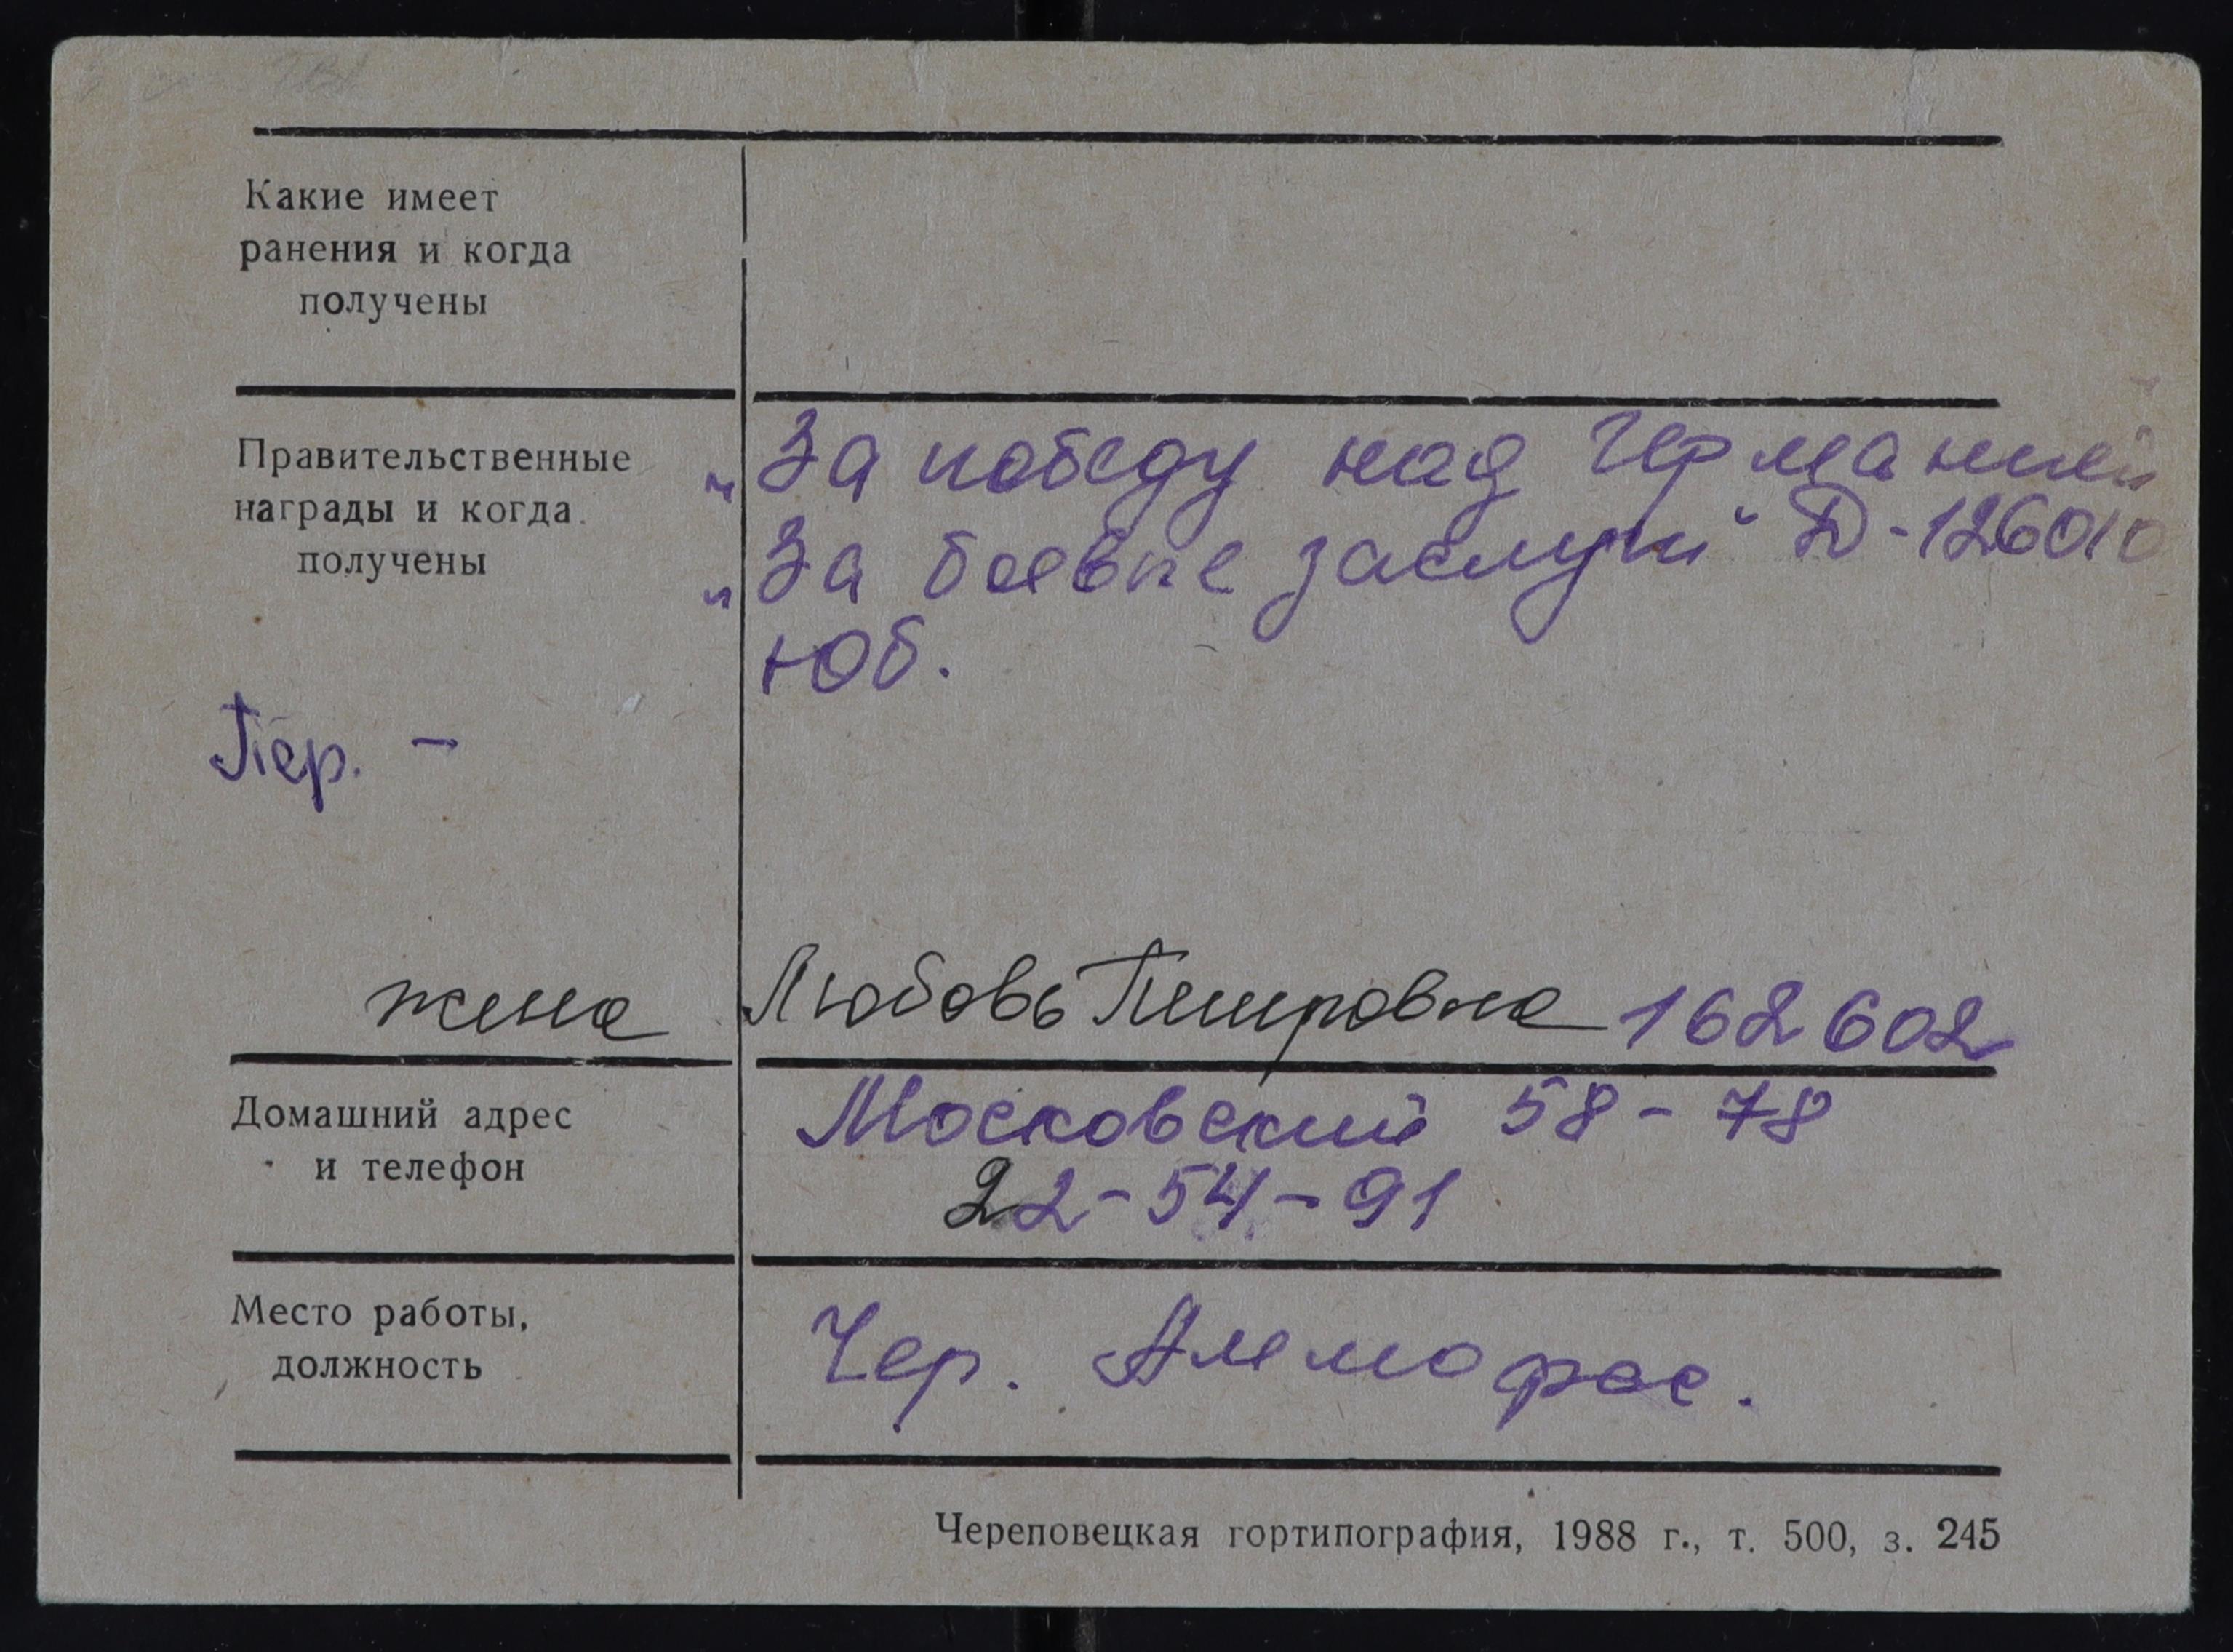 Какие имеет
ранения и когда
получены
Правительственные
награды и когда
получены
„За победу над Германией
„За боевые заслуги“ Д-126010
Юб.
Пер. -
жена Любовь Петровна 162602
Домашний адрес
и телефон
Московский 58-78
22-54-91
Место работы,
должность
Чер. Аммофос.
Череповецкая гортипография, 1988 г., т. 500, з. 245